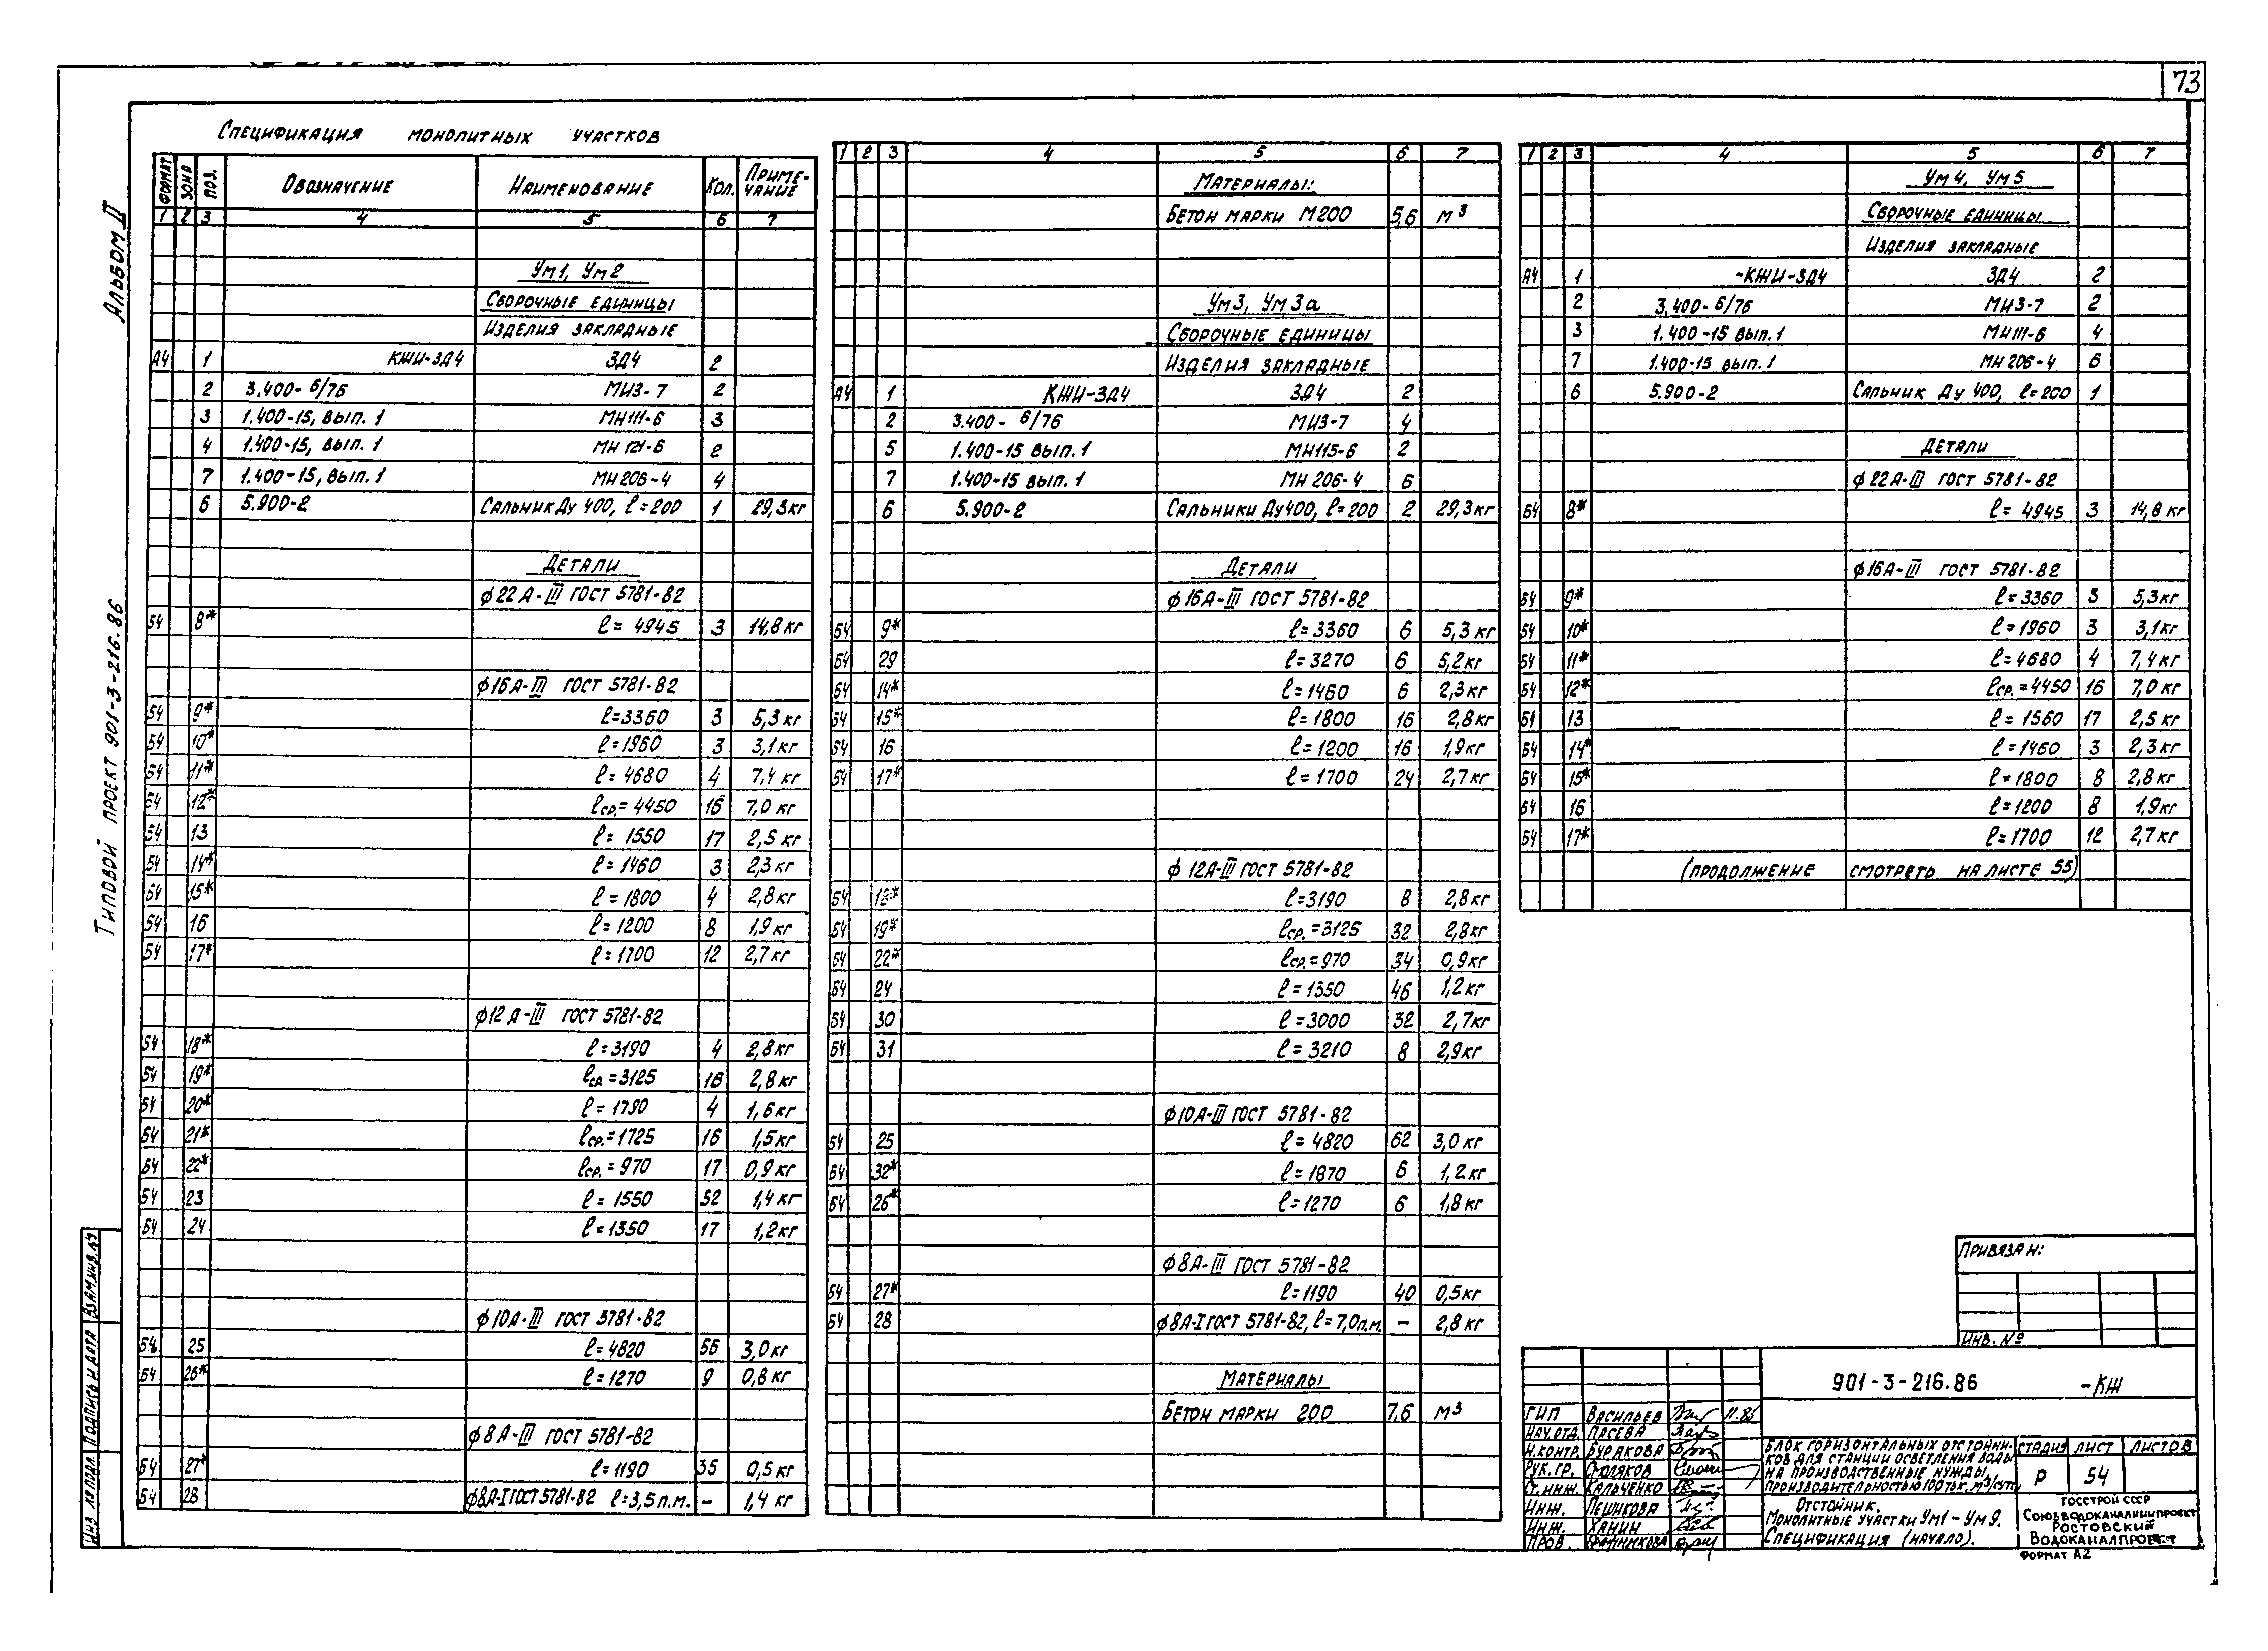 73
Альбом II
Типовой проект 901-3-216.86
Спецификация монолитных участков
Формат Зона Поз. Обозначение Наименование Кол. Примечание
1 2 3 4 5 6 7
Ум1, Ум2
Сборочные единицы
Изделия закладные
А4 1 КЖИ-ЗД4 ЗД4 2
2 3.400-6/76 МИЗ-7 2
3 1.400-15, вып. 1 МН111-6 3
4 1.400-15, вып. 1 МН 121-6 2
7 1.400-15, вып. 1 МН 206-4 4
6 5.900-2 Сальник Ду 400, ℓ=200 1 29,3 кг
Детали
ϕ22 А-III ГОСТ 5781-82
Б4 8* ℓ= 4945 3 14,8 кг
ϕ16 А-III ГОСТ 5781-82
Б4 9* ℓ=3360 3 5,3 кг
Б4 10* ℓ=1960 3 3,1 кг
Б4 11* ℓ= 4680 4 7,4 кг
Б4 12* ℓср.= 4450 16 7,0 кг
Б4 13 ℓ= 1550 17 2,5 кг
Б4 14* ℓ=1460 3 2,3 кг
Б4 15* ℓ=1800 4 2,8 кг
Б4 16 ℓ=1200 8 1,9 кг
Б4 17* ℓ=1700 12 2,7 кг
ϕ12 А-III ГОСТ 5781-82
Б4 18* ℓ=3190 4 2,8 кг
Б4 19* =3125 16 2,8 кг
Б4 20* ℓ= 1790 4 1,6 кг
Б4 21* ℓср.=1725 16 1,5 кг
Б4 22* ℓср.=970 17 0,9 кг
Б4 23 ℓ= 1550 52 1,4 кг
Б4 24 ℓ=1350 17 1,2 кг
ϕ10А-III ГОСТ 5781-82
Б4 25 ℓ=4820 56 3,0 кг
Б4 26* ℓ=1270 9 0,8 кг
ϕ8 А-III ГОСТ 5781-82
Б4 27* ℓ=1190 35 0,5 кг
Б4 28 ϕ8А-I ГОСТ 5781-82 ℓ=3,5 п.м. – 1,4 кг
1 2 3 4 5 6 7
Материалы:
Бетон марки М200 5,6 м³
Ум3, Ум3а
Сборочные единицы
Изделия закладные
А4 1 КЖИ-ЗД4 ЗД4 2
2 3.400-6/76 МИЗ-7 4
5 1.400-15 вып. 1 МН115-6 2
7 1.400-15 вып. 1 МН 206-4 6
6 5.900-2 Сальники Ду400, ℓ=200 2 29,3кг
Детали
ϕ16А-III ГОСТ 5781-82
Б4 9* ℓ=3360 6 5,3 кг
Б4 29 ℓ=3270 6 5,2кг
Б4 14* ℓ=1460 6 2,3кг
Б4 15* ℓ=1800 16 2,8кг
Б4 16 ℓ=1200 16 1,9кг
Б4 17* ℓ=1700 24 2,7кг
ϕ 12А-III ГОСТ 5781-82
Б4 18* ℓ=3190 8 2,8кг
Б4 19* ℓср.=3125 32 2,8кг
Б4 22* ℓср.=970 34 0,9кг
Б4 24 ℓ=1350 46 1,2кг
Б4 30 ℓ=3000 32 2,7кг
Б4 31 ℓ=3210 8 2,9кг
ϕ10А-III ГОСТ 5781-82
Б4 25 ℓ=4820 62 3,0 кг
Б4 32* ℓ=1870 6 1,2кг
Б4 26* ℓ=1270 6 1,8кг
ϕ8А-III ГОСТ 5781-82
Б4 27* ℓ=1190 40 0,5кг
Б4 28 ϕ8А-I ГОСТ 5781-82, ℓ=7,0п.м. – 2,8 кг
Материалы
Бетон марки 200 7,6 м³
1 2 3 4 5 6 7
Ум4, Ум5
Сборочные единицы
Изделия закладные
А4 1 -КЖИ-ЗД4 ЗД4 2
2 3.400-6/76 МИЗ-7 2
3 1.400-15 вып.1 МН111-6 4
7 1.400-15 вып.1 МН 206-4 6
6 5.900-2 Сальник Ду 400, ℓ=200 1
Детали
ϕ22А-III ГОСТ 5781-82
Б4 8* ℓ= 4945 3 14,8 кг
ϕ16А-III ГОСТ 5781-82
Б4 9* ℓ=3360 3 5,3кг
Б4 10* ℓ=1960 3 3,1кг
Б4 11* ℓ=4680 4 7,4кг
Б4 12* ℓср.=4450 16 7,0 кг
Б4 13 ℓ= 1560 17 2,5 кг
Б4 14* ℓ=1460 3 2,3кг
Б4 15* ℓ=1800 8 2,8кг
Б4 16 ℓ=1200 8 1,9кг
Б4 17* ℓ=1700 12 2,7кг
(продолжение смотреть на листе 55)
Привязан:
Инв. №
901-3-216.86 -КЖ
ГИП Васильев 11.85
Нач.отд. Пасева
Н.контр. Буракова
Рук.гр. Смоляков
Ст.инж. Кальченко
Инж. Пешкова
Инж. Ханин
Пров.
Блок горизонтальных отстойни-
ков для станции осветления воды
на производственные нужды,
производительностью 100 тыс. м³/сутки
Стадия Лист Листов
Р 54
Отстойник.
Монолитные участки Ум1-Ум9.
Спецификация (начало).
Госстрой СССР
Союзводоканалниипроект
Ростовский
Водоканалпроект
Формат А2
Инв. № подл. Подпись и дата Взам.инв.№